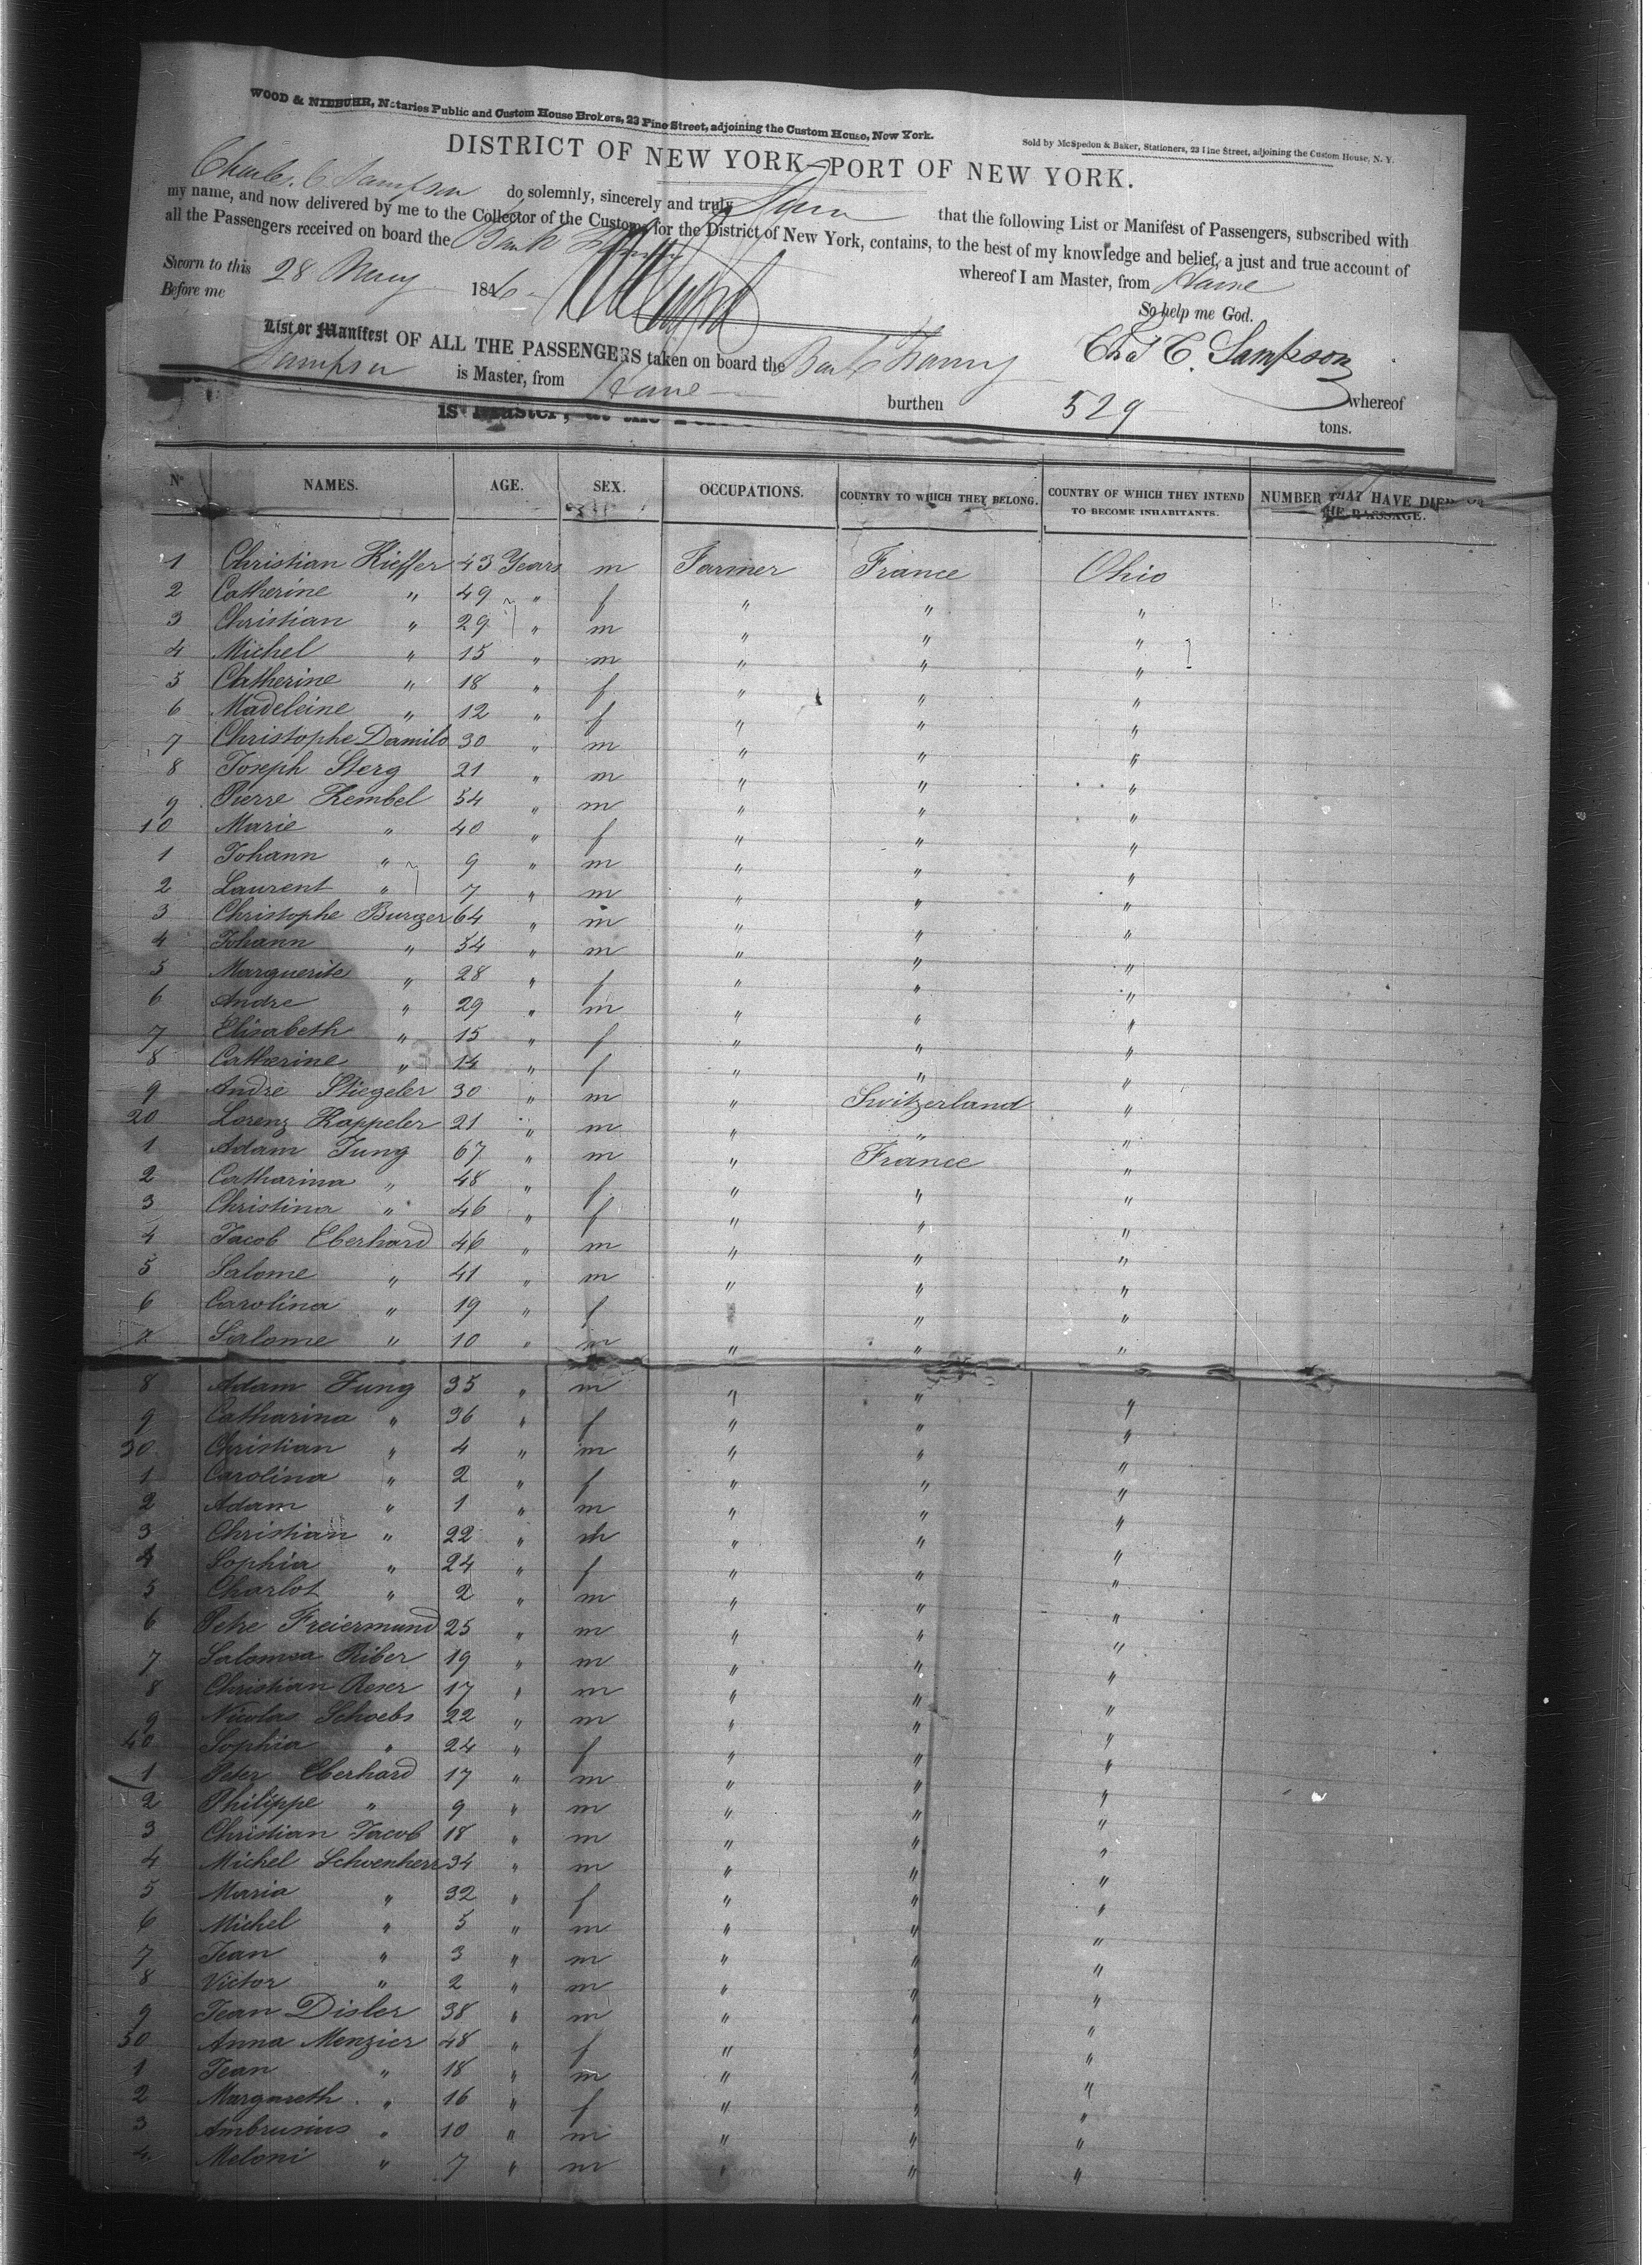 WOOD & NIEBUHR, Notaries Public and Custom House Brokers, 23 Pine Street, adjoining the Custom House, New York.
Sold by McSpedon & Baker, Stationers, 23 Pine Street, adjoining the Custom House, N. Y.
DISTRICT OF NEW YORK—PORT OF NEW YORK.
Charles C Sampson do solemnly, sincerely and truly Swear that the following List or Manifest of Passengers, subscribed with
my name, and now delivered by me to the Collector of the Customs for the District of New York, contains, to the best of my knowledge and belief, a just and true account of
all the Passengers received on board the Bark Fanny whereof I am Master, from Havre
Sworn to this 28 May 1846 So help me God.
Before me Chs C. Sampson
List or Manifest OF ALL THE PASSENGERS taken on board the Bark Fanny whereof
Sampson is Master, from Havre burthen 529 tons.
is Master,
No NAMES. AGE. SEX. OCCUPATIONS. COUNTRY TO WHICH THEY BELONG. COUNTRY OF WHICH THEY INTEND TO BECOME INHABITANTS. NUMBER THAT HAVE DIED ON THE PASSAGE.
1 Christian Kieffer 43 Years m Farmer France Ohio
2 Catherine " 49 " f " " "
3 Christian " 29 " m " " "
4 Michel " 15 " m " " "
5 Catherine " 18 " f " " "
6 Madeleine " 12 " f " " "
7 Christophe Damilo 30 " m " " "
8 Joseph Sterg 21 " m " " "
9 Pierre Kembel 54 " m " " "
10 Marie " 40 " f " " "
1 Johann " 9 " m " " "
2 Laurent " 7 " m " " "
3 Christophe Burger 64 " m " " "
4 Johann " 54 " m " " "
5 Marguerite " 28 " f " " "
6 Andre " 29 " m " " "
7 Elisabeth " 15 " f " " "
8 Catherine " 14 " f " " "
9 Andre Stiegeler 30 " m " Switzerland "
20 Lorenz Kappeler 21 " m " " "
1 Adam Jung 67 " m " France "
2 Catharina " 48 " f " " "
3 Christina " 46 " f " " "
4 Jacob Eberhard 46 " m " " "
5 Salome " 41 " m " " "
6 Carolina " 19 " f " " "
7 Salome " 10 " m " " "
8 Adam Jung 35 " m " " "
9 Catharina " 36 " f " " "
30 Christian " 4 " m " " "
1 Carolina " 2 " f " " "
2 Adam " 1 " m " " "
3 Christian " 22 " m " " "
4 Sophia " 24 " f " " "
5 Charlot " 2 " m " " "
6 Petre Freiermund 25 " m " " "
7 Salomea Riber 19 " m " " "
8 Christian Reser 17 " m " " "
9 Nicolas Schoebs 22 " m " " "
40 Sophia " 24 " f " " "
1 Peter Eberhard 17 " m " " "
2 Philippe " 9 " m " " "
3 Christian Jacob 18 " m " " "
4 Michel Schoenherr 34 " m " " "
5 Maria " 32 " f " " "
6 Michel " 5 " m " " "
7 Jean " 3 " m " " "
8 Victor " 2 " m " " "
9 Jean Disler 38 " m " " "
50 Anna Menzier 48 " f " " "
1 Jean " 18 " m " " "
2 Margareth " 16 " f " " "
3 Ambrusius " 10 " m " " "
4 Meloni " 7 " m " " "